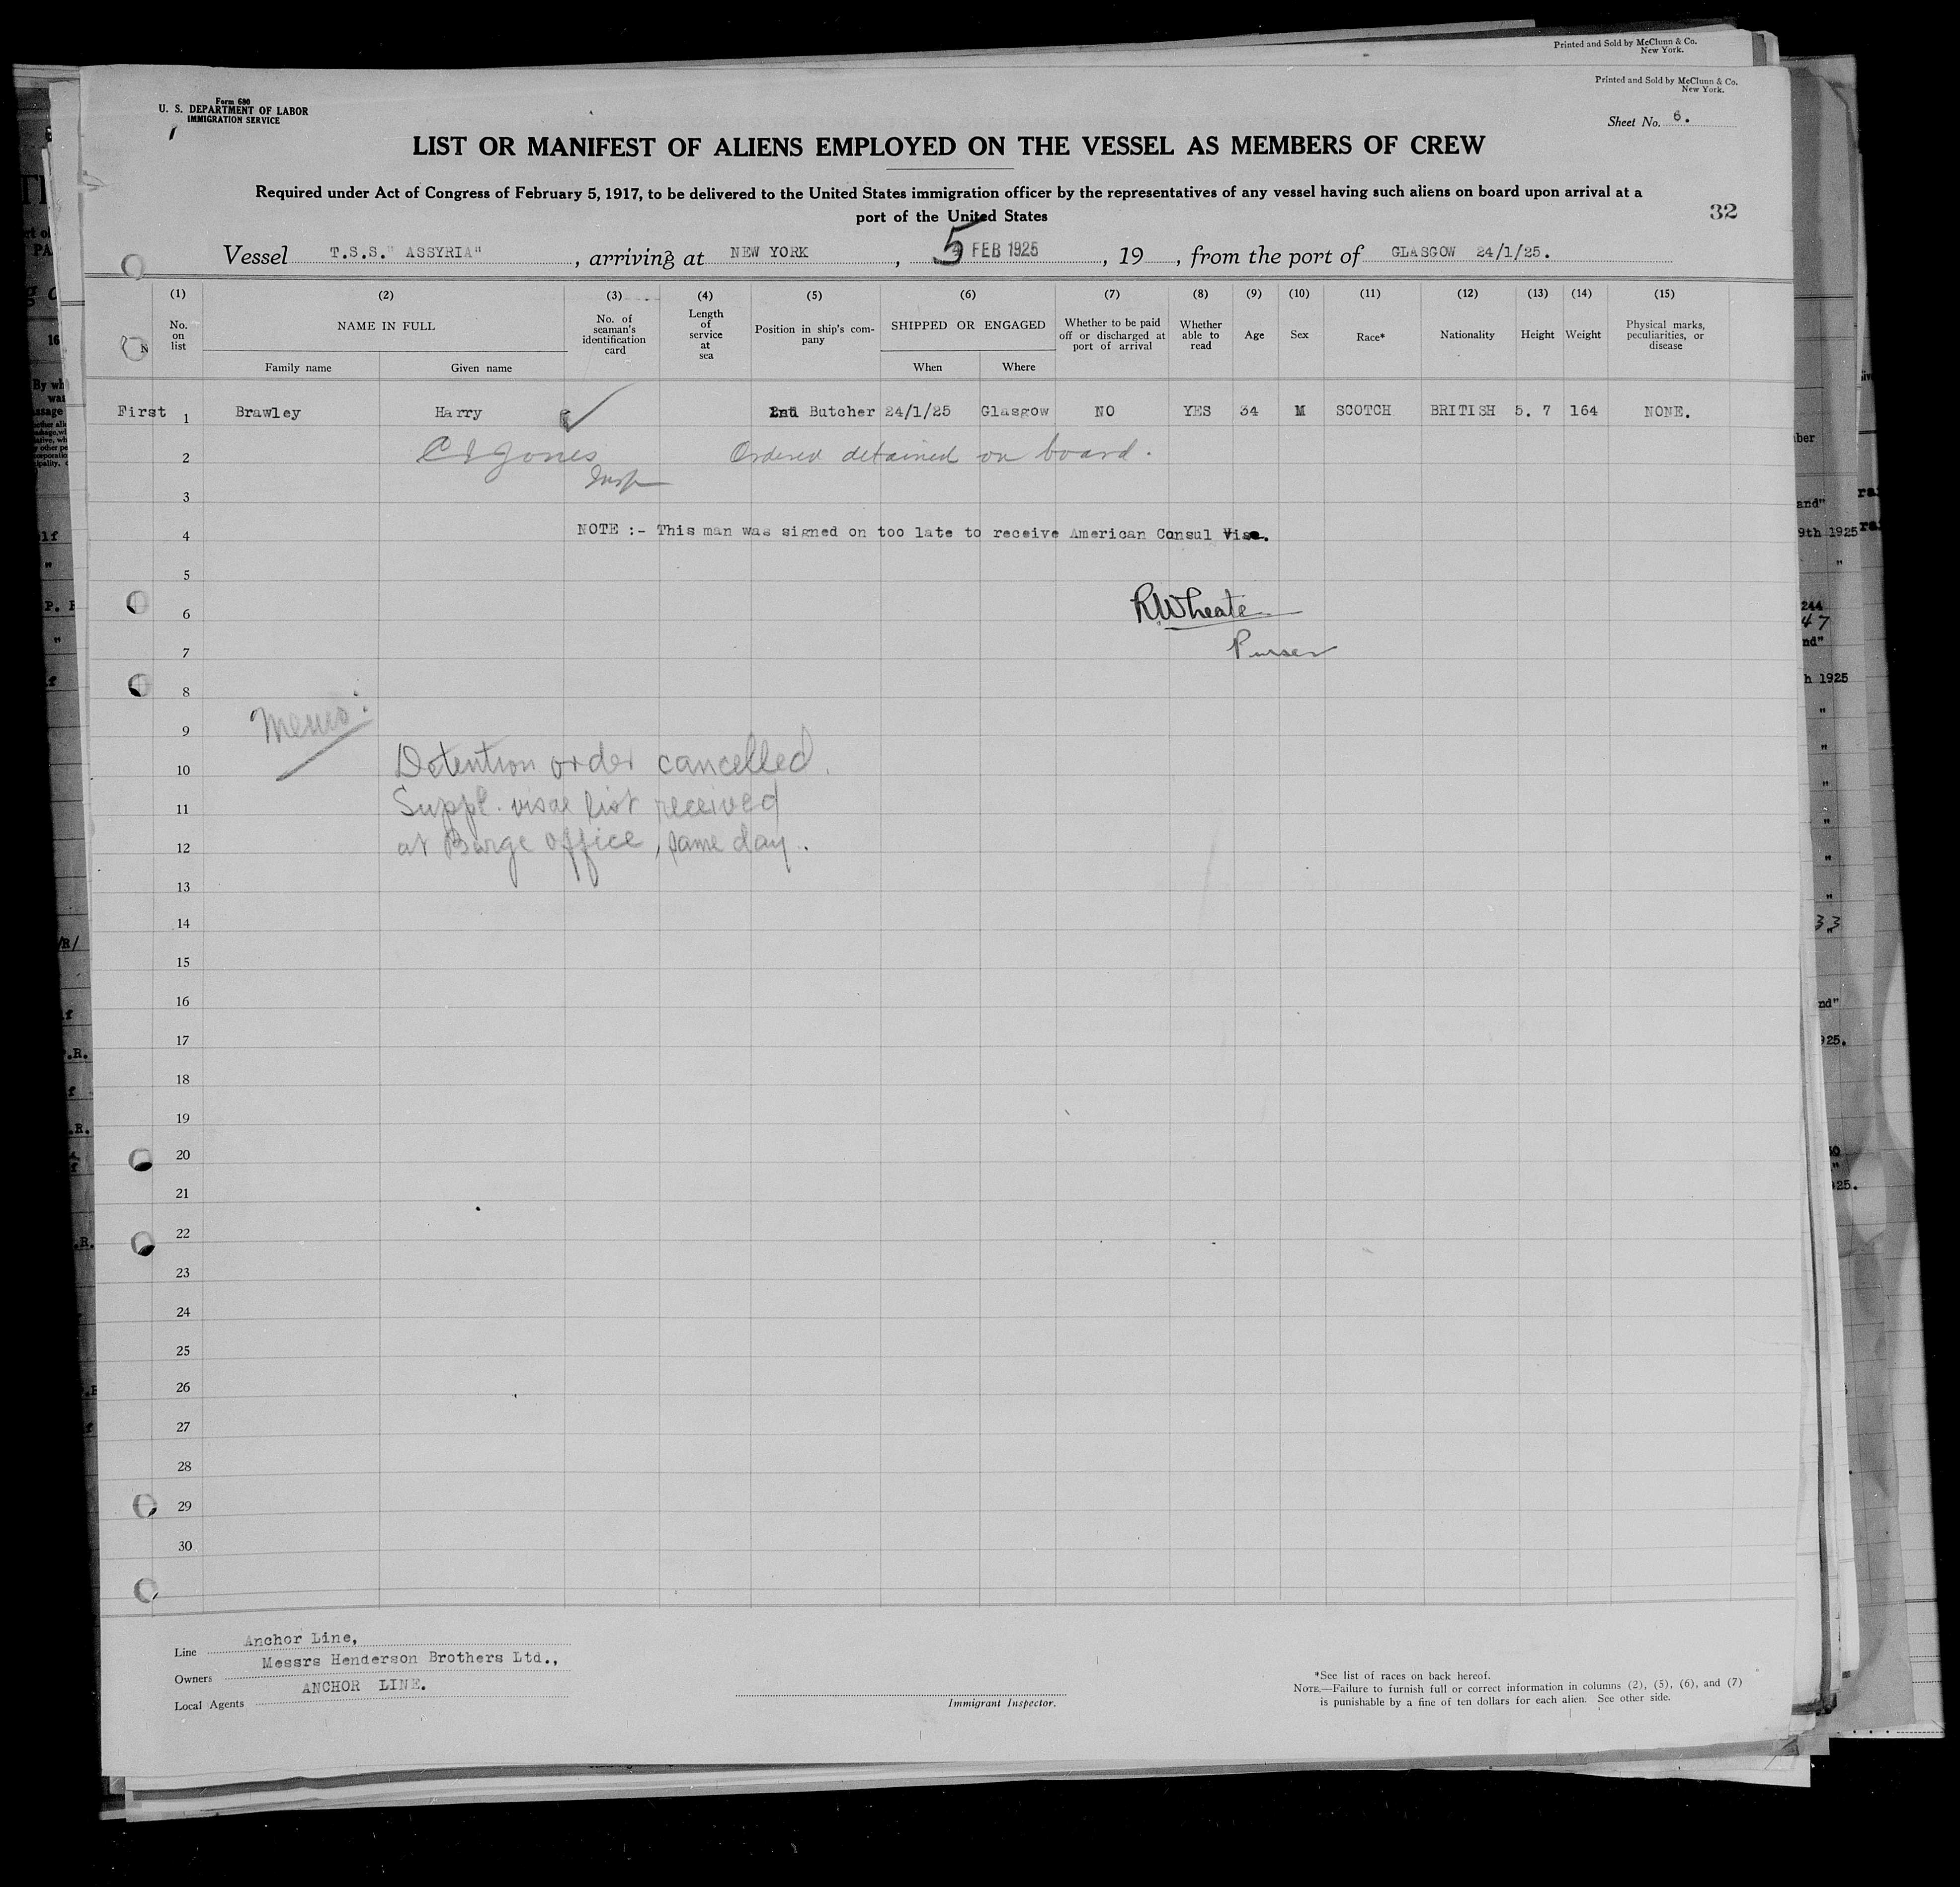 Printed and Sold by McClunn & Co.
New York.
Printed and Sold by McClunn & Co.
New York.
Form 680
U. S. DEPARTMENT OF LABOR
IMMIGRATION SERVICE
Sheet No. 6.
LIST OR MANIFEST OF ALIENS EMPLOYED ON THE VESSEL AS MEMBERS OF CREW
Required under Act of Congress of February 5, 1917, to be delivered to the United States immigration officer by the representatives of any vessel having such aliens on board upon arrival at a
port of the United States
32
Vessel T.S.S." ASSYRIA" , arriving at NEW YORK , 5 FEB 1925 , 19 , from the port of GLASGOW 24/1/25.
(1) (2) (3) (4) (5) (6) (7) (8) (9) (10) (11) (12) (13) (14) (15)
No. on list
NAME IN FULL
Family name Given name
No. of seaman's identification card
Length of service at sea
Position in ship's company
SHIPPED OR ENGAGED
When Where
Whether to be paid off or discharged at port of arrival
Whether able to read
Age Sex Race* Nationality Height Weight
Physical marks, peculiarities, or disease
First 1 Brawley Harry 2nd Butcher 24/1/25 Glasgow NO YES 34 M SCOTCH BRITISH 5. 7 164 NONE.
2 C I Jones Ordered detained on board.
Insp
3
4 NOTE :- This man was signed on too late to receive American Consul Vise.
5
6 R. Wheate
7 Purser
8
9 Memo:
10 Detention order cancelled.
11 Suppl. visae list received
12 at Barge office, same day.
13
14
15
16
17
18
19
20
21
22
23
24
25
26
27
28
29
30
Line Anchor Line,
Owners Messrs Henderson Brothers Ltd.,
Local Agents ANCHOR LINE.
Immigrant Inspector.
*See list of races on back hereof.
NOTE.—Failure to furnish full or correct information in columns (2), (5), (6), and (7)
is punishable by a fine of ten dollars for each alien. See other side.